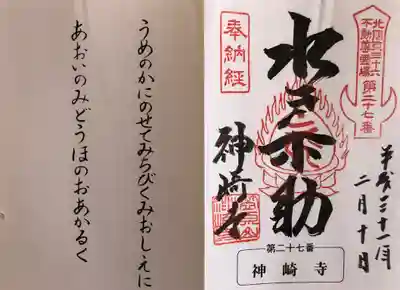 北関東三十六
不動尊霊場
第二十七番
平成三十一年
二月十日
水戸不動
奉納経
神崎寺
第二十七番
神崎寺
うめのかにのせてみちびくみおしえに
あおいのみどうほのおあかるく